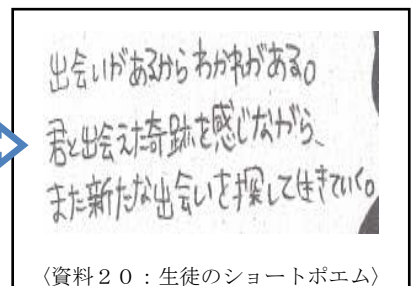 出会いがあるからわかれがある。
君と出会えた奇跡を感じながら、
また新たな出会いを探して生きていく。
〈資料２０：生徒のショートポエム〉